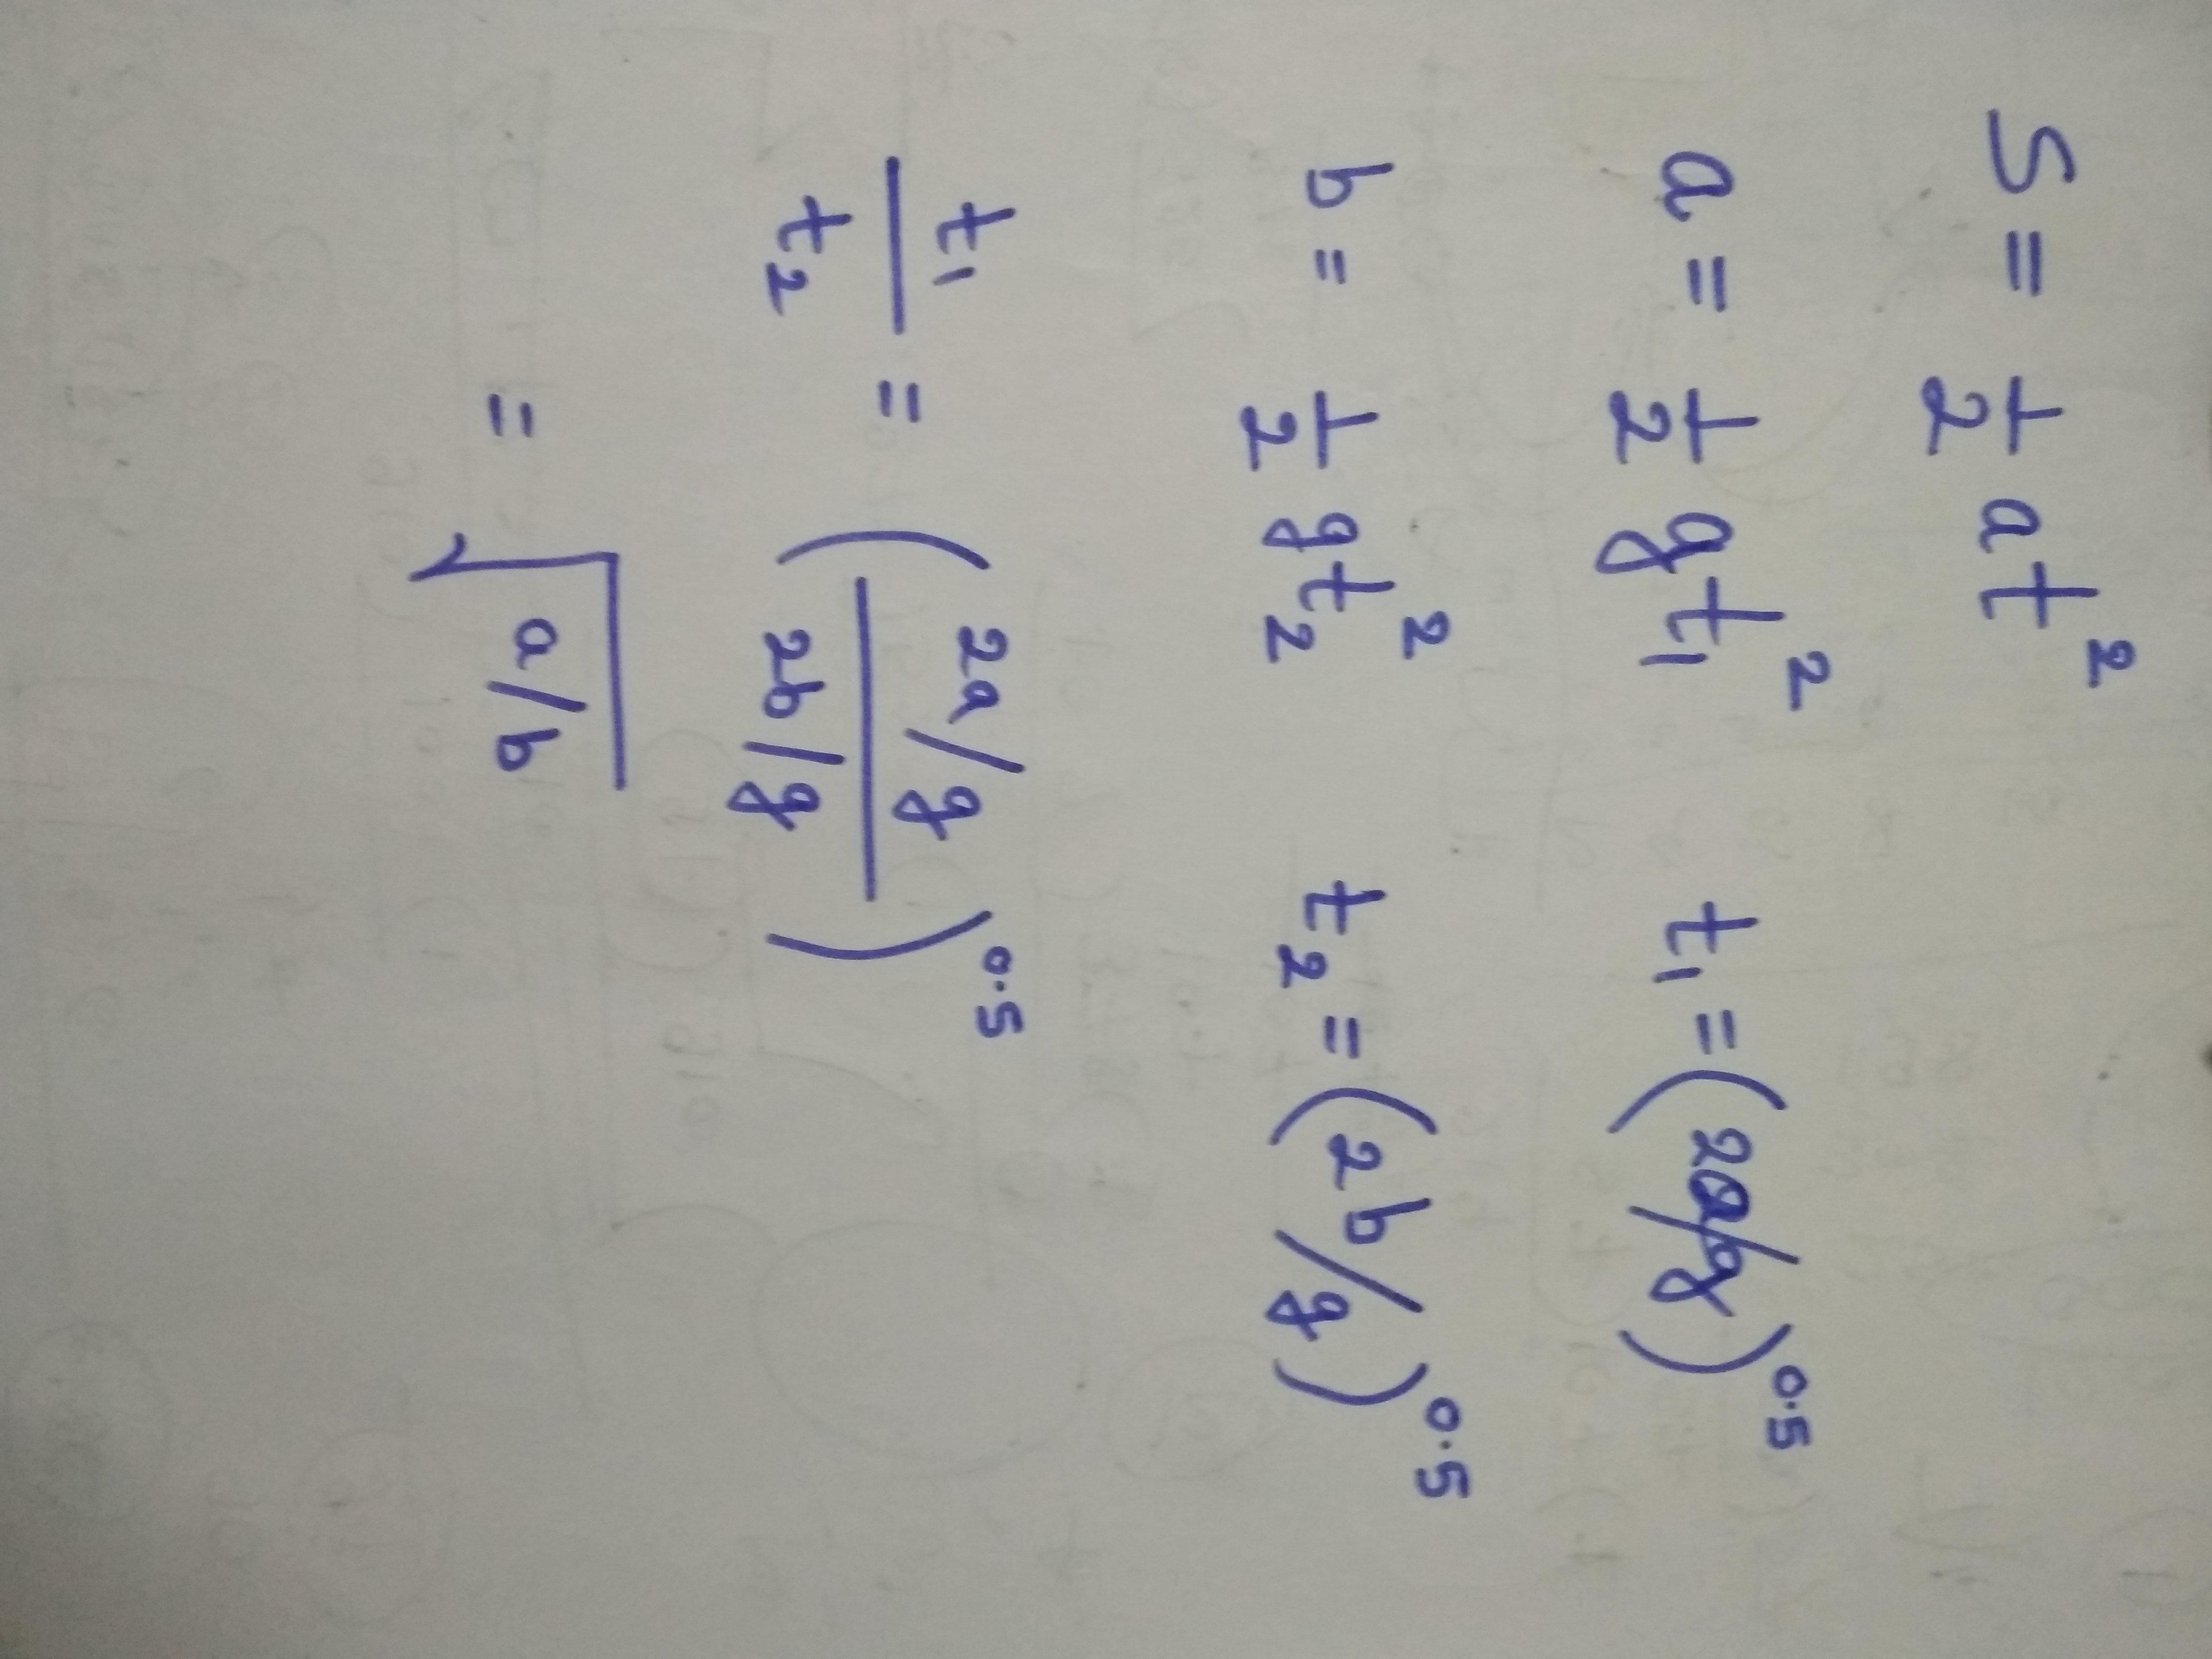 S = 1/2 at²
a = 1/2 gt₁² t₁ = (2a/g)^0.5
b = 1/2 gt₂² t₂ = (2b/g)^0.5
t₁/t₂ = ((2a/g)/(2b/g))^0.5
= √(a/b)